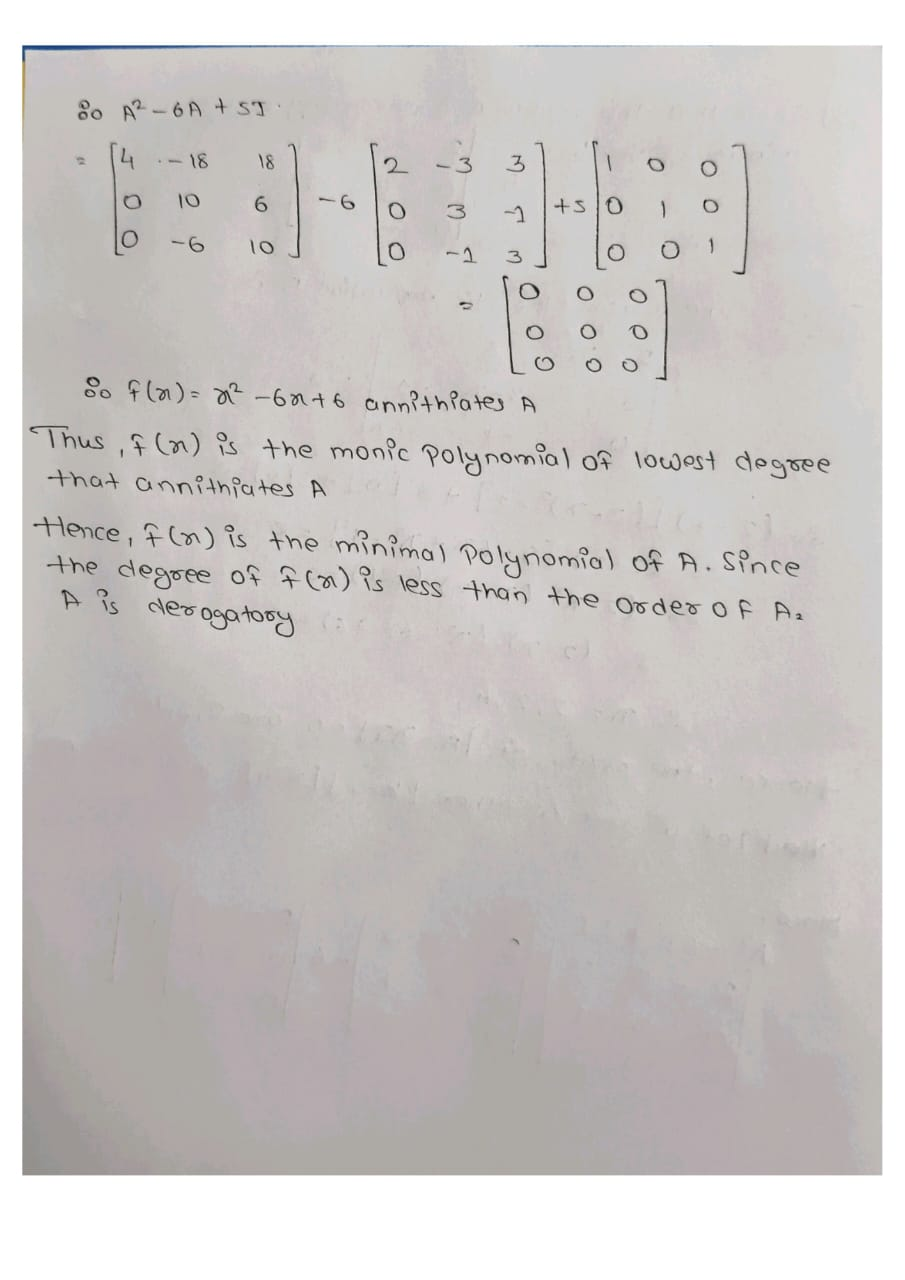 ∴ A² - 6A + 5I
= [4 -18 18] - 6 [2 -3 3] + 5 [1 0 0]
[0 10 6] [0 3 -1] [0 1 0]
[0 -6 10] [0 -1 3] [0 0 1]
= [0 0 0]
[0 0 0]
[0 0 0]
∴ f(x) = x² - 6x + 6 annithiates A
Thus, f(x) is the monic polynomial of lowest degree
that annithiates A
Hence, f(x) is the minimal polynomial of A. Since
the degree of f(x) is less than the order of A.
A is derogatory